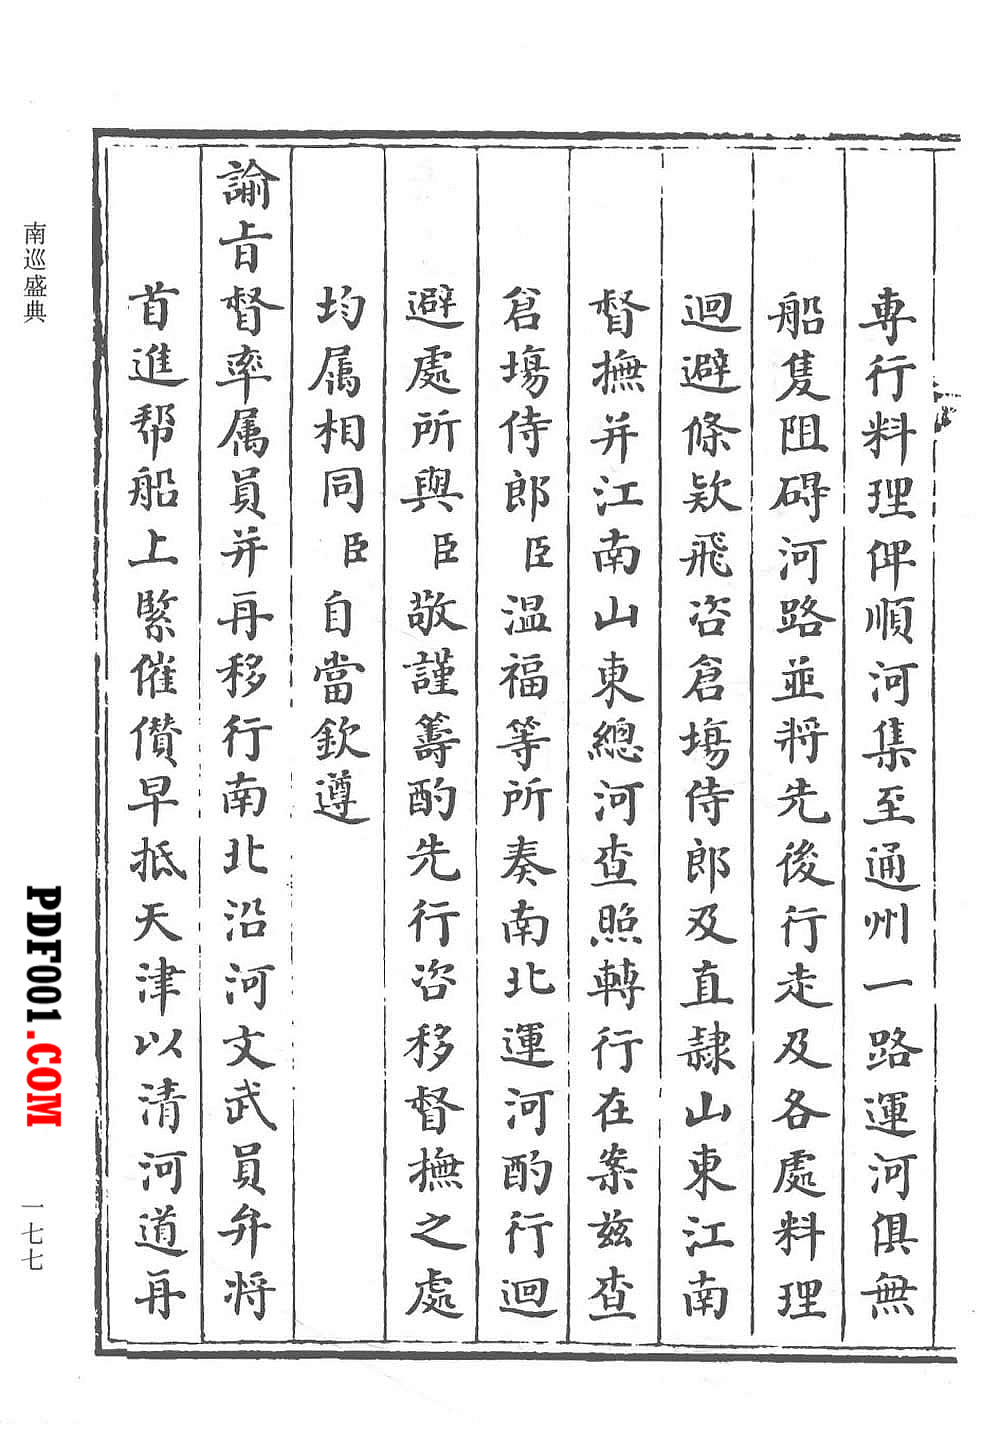 專行料理俾順河集至通州一路運河俱無
船隻阻碍河路並將先後行走及各處料理
迴避條欵飛咨倉塲侍郎及直隷山東江南
督撫并江南山東總河查照轉行在案兹查
倉塲侍郎臣温福等所奏南北運河酌行迴
避處所與臣敬謹籌酌先行咨移督撫之處
均属相同臣自當欽遵
諭旨督率属員并再移行南北沿河文武員弁将
首進帮船上緊催儹早抵天津以清河道再
南巡盛典
一七七
PDF001.COM